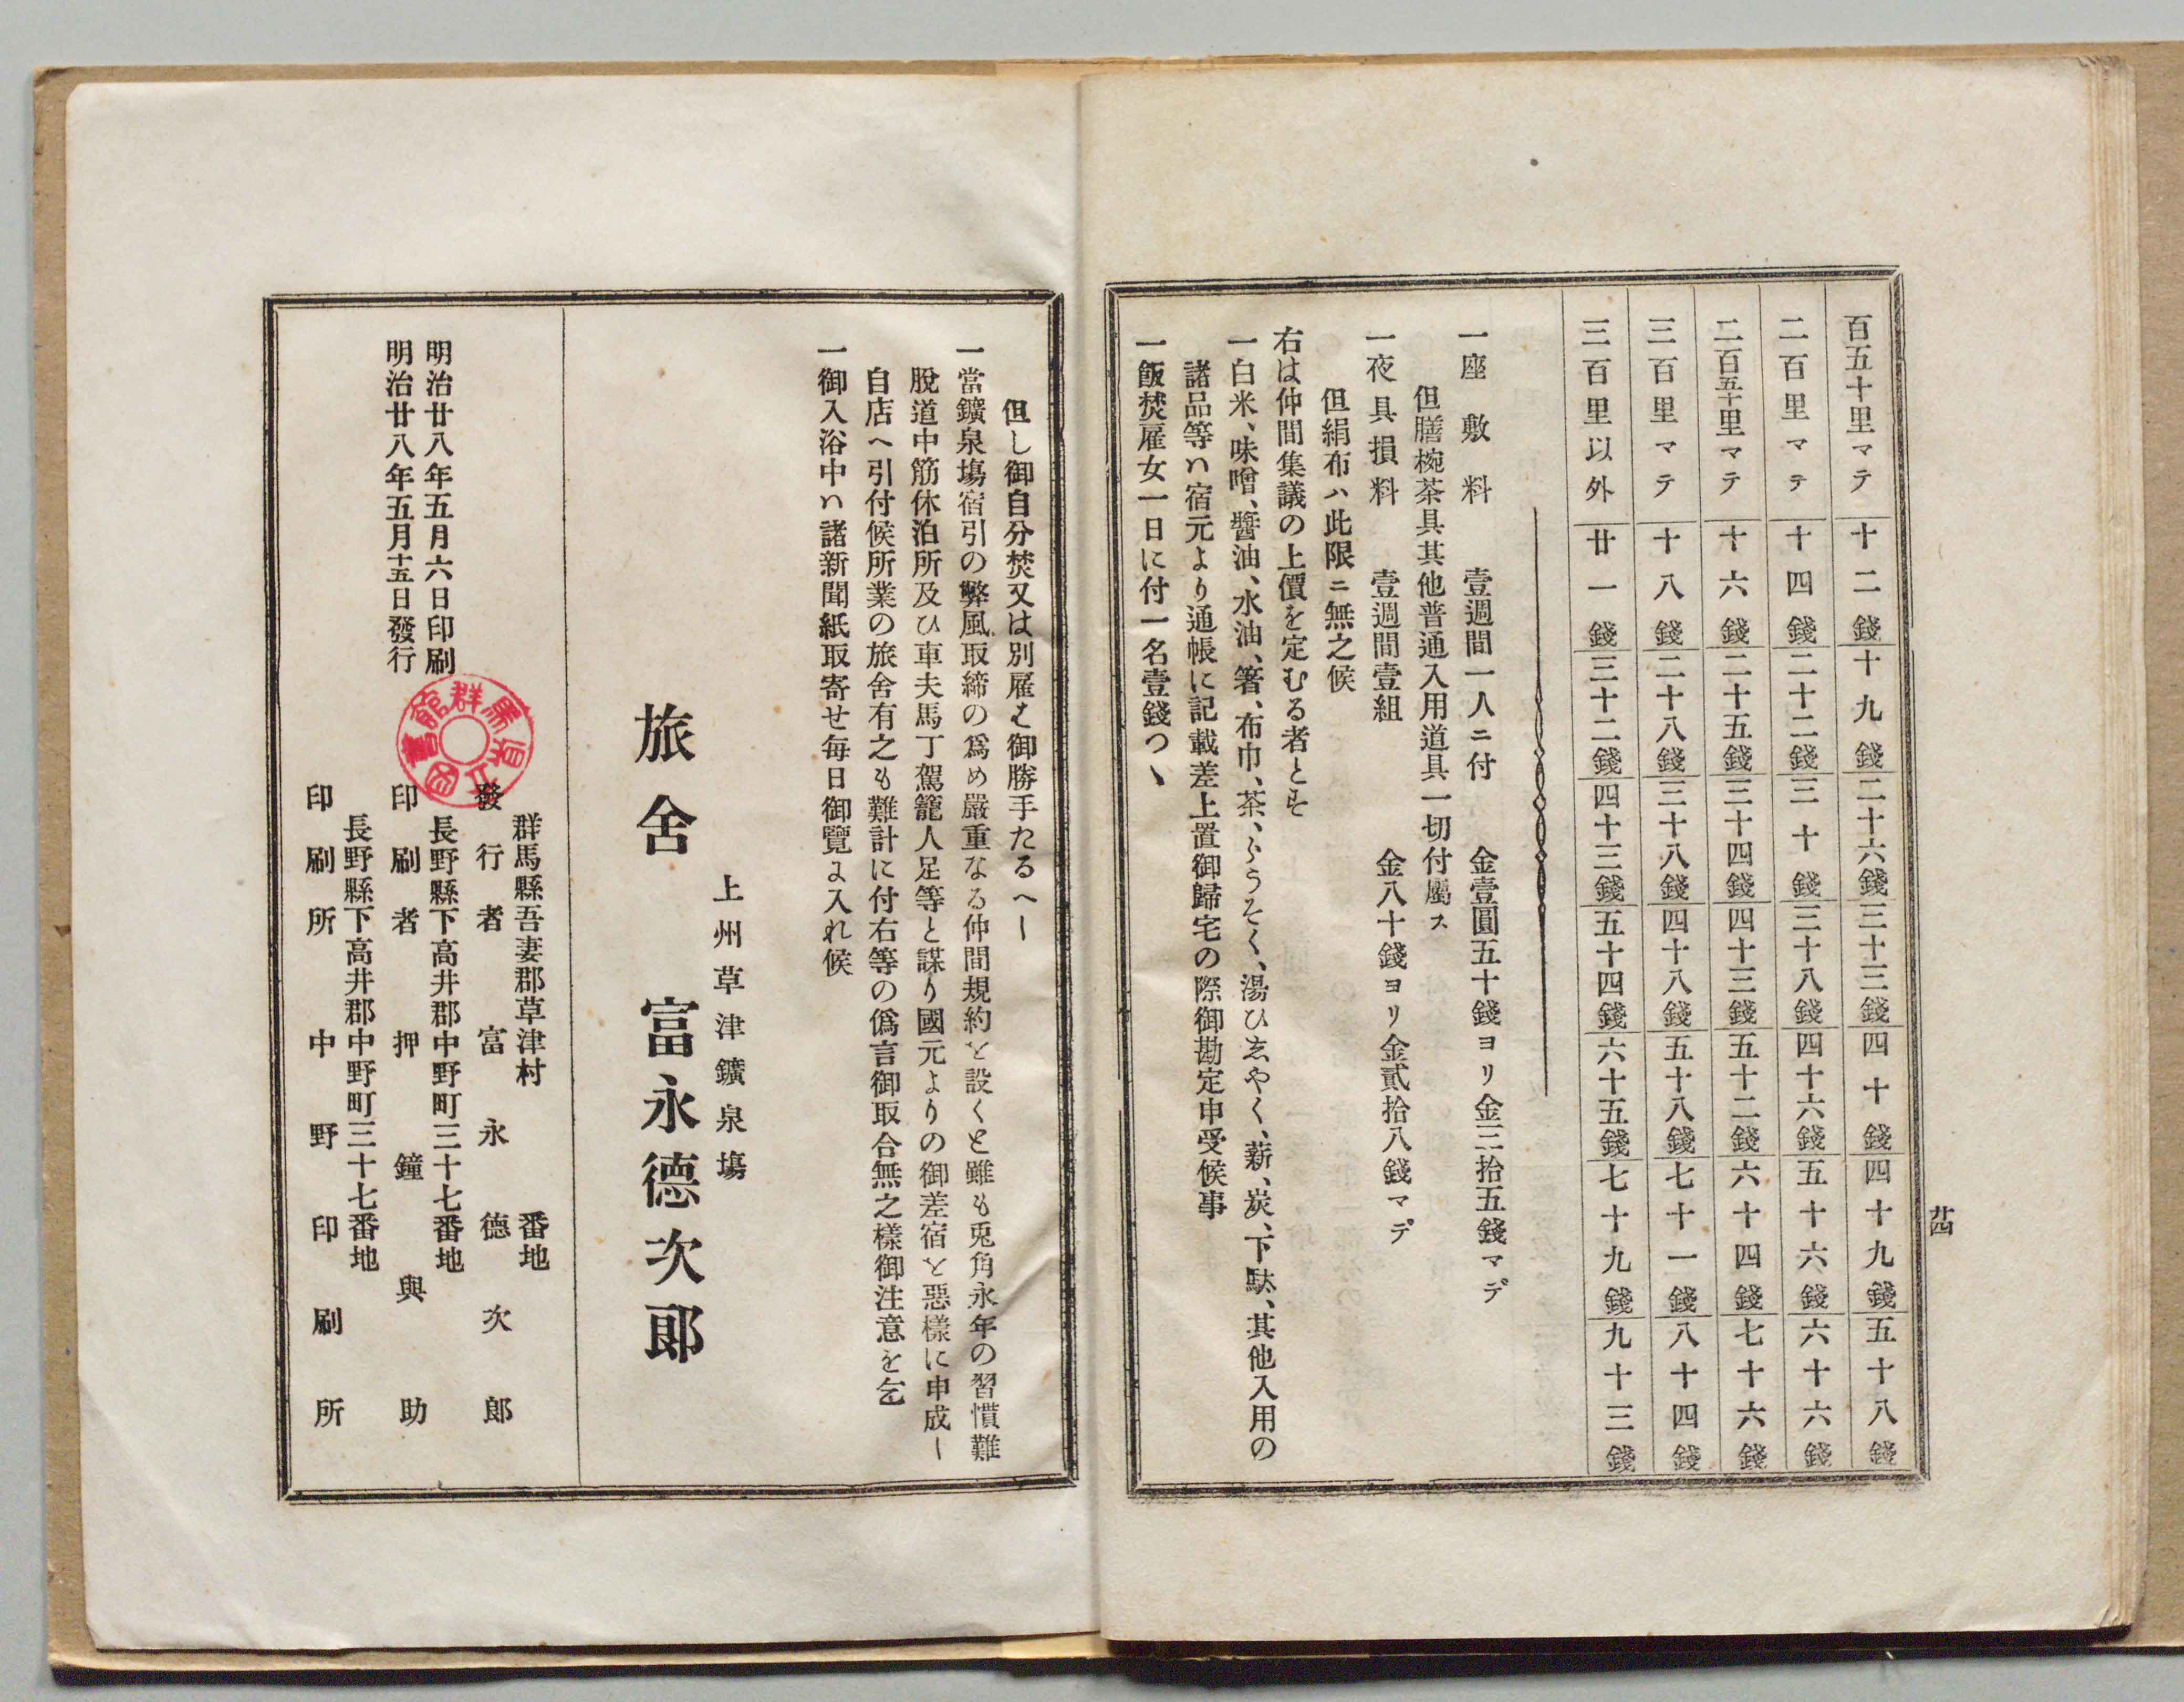 廿四
百五十里マテ 十二錢 十九錢 二十六錢 三十三錢 四十錢 四十九錢 五十八錢
二百里マテ 十四錢 二十二錢 三十錢 三十八錢 四十六錢 五十六錢 六十六錢
二百五十里マテ 十六錢 二十五錢 三十四錢 四十三錢 五十二錢 六十四錢 七十六錢
三百里マテ 十八錢 二十八錢 三十八錢 四十八錢 五十八錢 七十一錢 八十四錢
三百里以外 廿一錢 三十二錢 四十三錢 五十四錢 六十五錢 七十九錢 九十三錢
一座敷料 壹週間一人ニ付 金壹圓五十錢ヨリ金三拾五錢マデ
但膳椀茶具其他普通入用道具一切付屬ス
一夜具損料 壹週間壹組 金八十錢ヨリ金貳拾八錢マデ
但絹布ハ此限ニ無之候
右は仲間集議の上價を定むる者とす
一白米、味噌、醬油、水油、箸、布巾、茶、らうそく、湯ひゑやく、薪、炭、下駄、其他入用の
諸品等ハ宿元より通帳に記載差上置御歸宅の際御勘定申受候事
一飯焚雇女一日に付一名壹錢つヽ
但し御自分焚又は別雇は御勝手たるへし
一當鑛泉塲宿引の弊風取締の爲め嚴重なる仲間規約を設くと雖も兎角永年の習慣難
脫道中筋休泊所及ひ車夫馬丁駕籠人足等と謀り國元よりの御差宿を惡樣に申成し
自店へ引付候所業の旅舍有之も難計に付右等の僞言御取合無之樣御注意を乞
一御入浴中ハ諸新聞紙取寄せ每日御覽よ入れ候
上州草津鑛泉塲
旅舍 富永德次郎
群馬縣吾妻郡草津村 番地
發行者 富永德次郎
長野縣下高井郡中野町三十七番地
印刷者 押鐘與助
長野縣下高井郡中野町三十七番地
印刷所 中野印刷所
明治廿八年五月六日印刷
明治廿八年五月十五日發行
群馬県立図書館